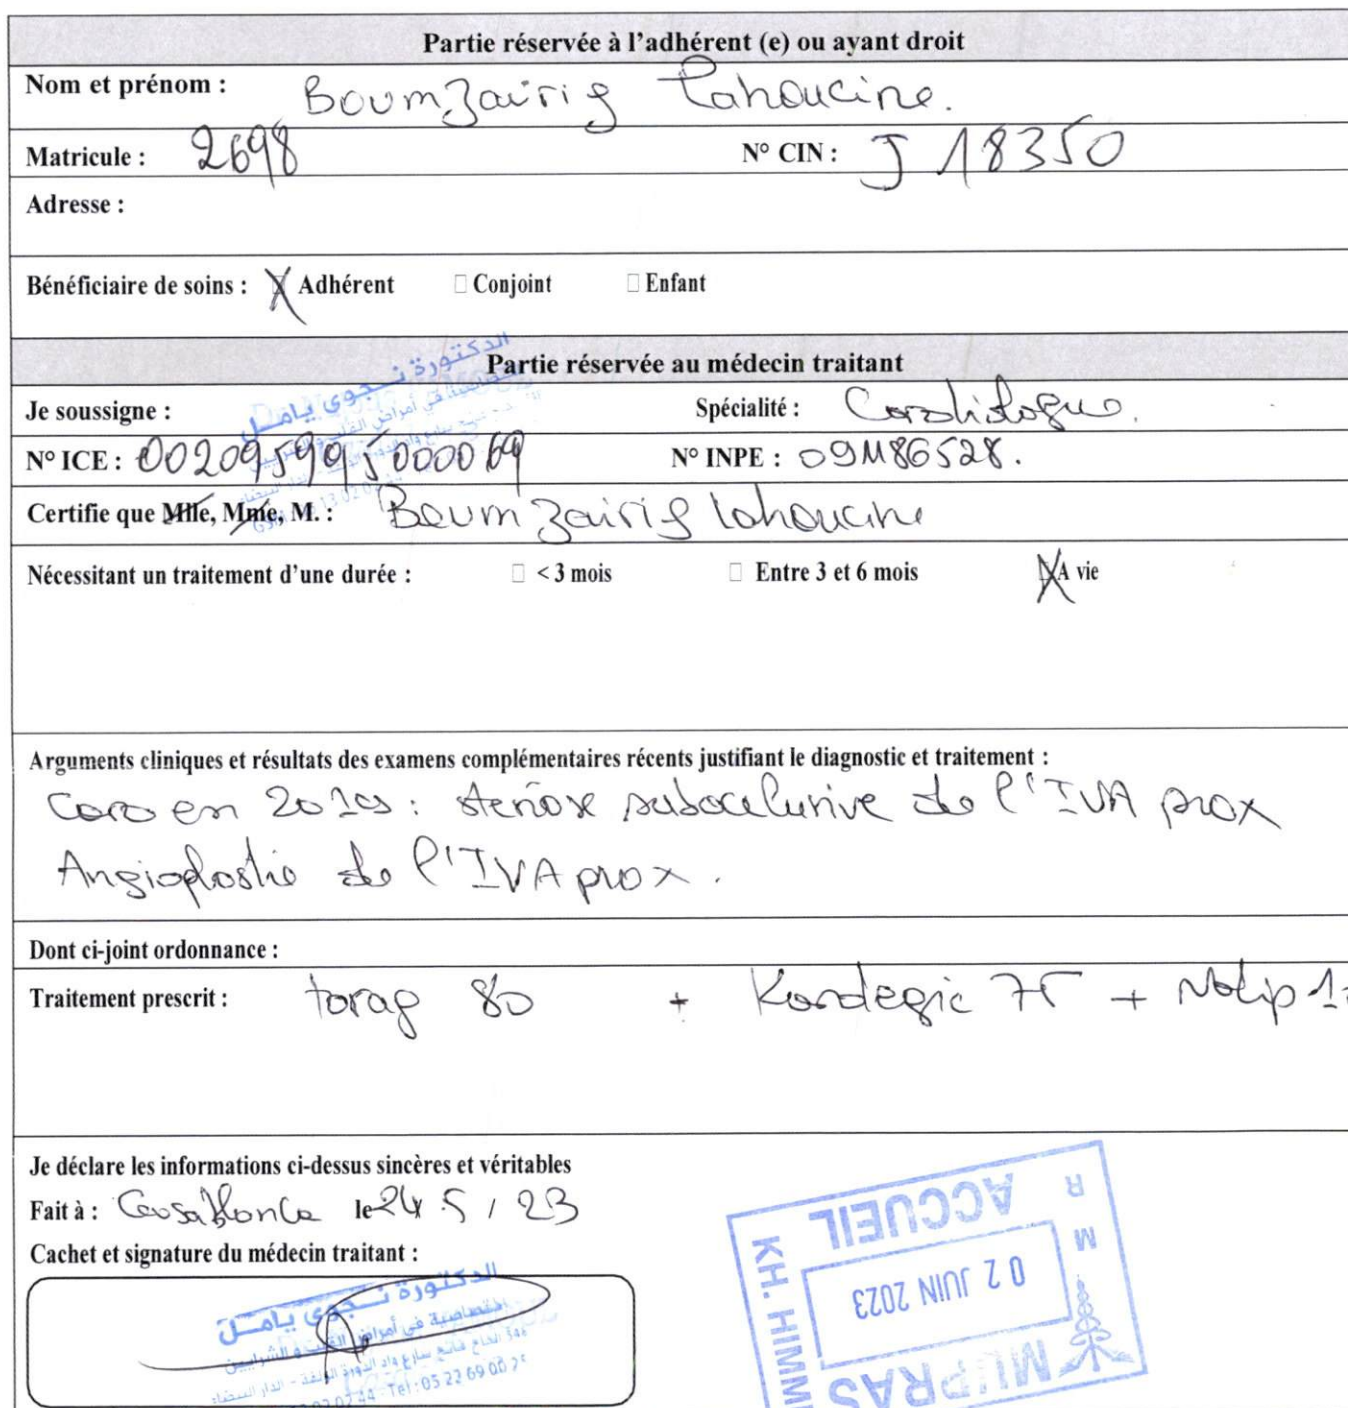 Partie réservée à l'adhérent (e) ou ayant droit
Nom et prénom : Boumzairig Lahoucine.
Matricule : 2698 N° CIN : J 18350
Adresse :
Bénéficiaire de soins : X Adhérent □ Conjoint □ Enfant
الدكتورة نجوى يامل
Partie réservée au médecin traitant
Je soussigne : Spécialité : Cardiologue.
N° ICE : 002095995000069 N° INPE : 091186528.
Certifie que Mlle, Mme, M. : Boumzairig lahoucine
Nécessitant un traitement d'une durée : □ < 3 mois □ Entre 3 et 6 mois X A vie
Arguments cliniques et résultats des examens complémentaires récents justifiant le diagnostic et traitement :
Coro en : sténose subocclusive de l'IVA prox
Angioplastie de l'IVA prox.
Dont ci-joint ordonnance :
Traitement prescrit : torag 80 + Kardegic 75 + Nolip
Je déclare les informations ci-dessus sincères et véritables
Fait à : Casablanca le 24 5 / 23
Cachet et signature du médecin traitant :
الدكتورة نجوى يامل
إختصاصية في أمراض القلب و الشرايين
Tel : 05 22 69 00
ACCUEIL
02 JUIN 2023
KH. HIMM
MUPRAS
R M